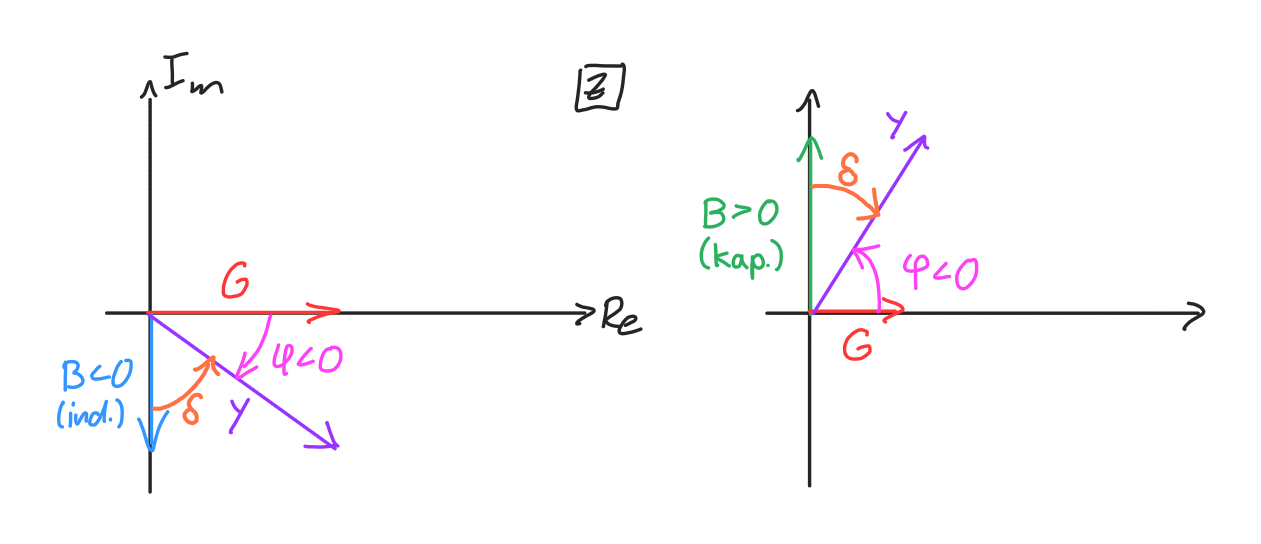 Im
Z
G
Re
φ<0
B<0
(ind.)
δ
Y
Y
δ
B>0
(kap.)
φ<0
G